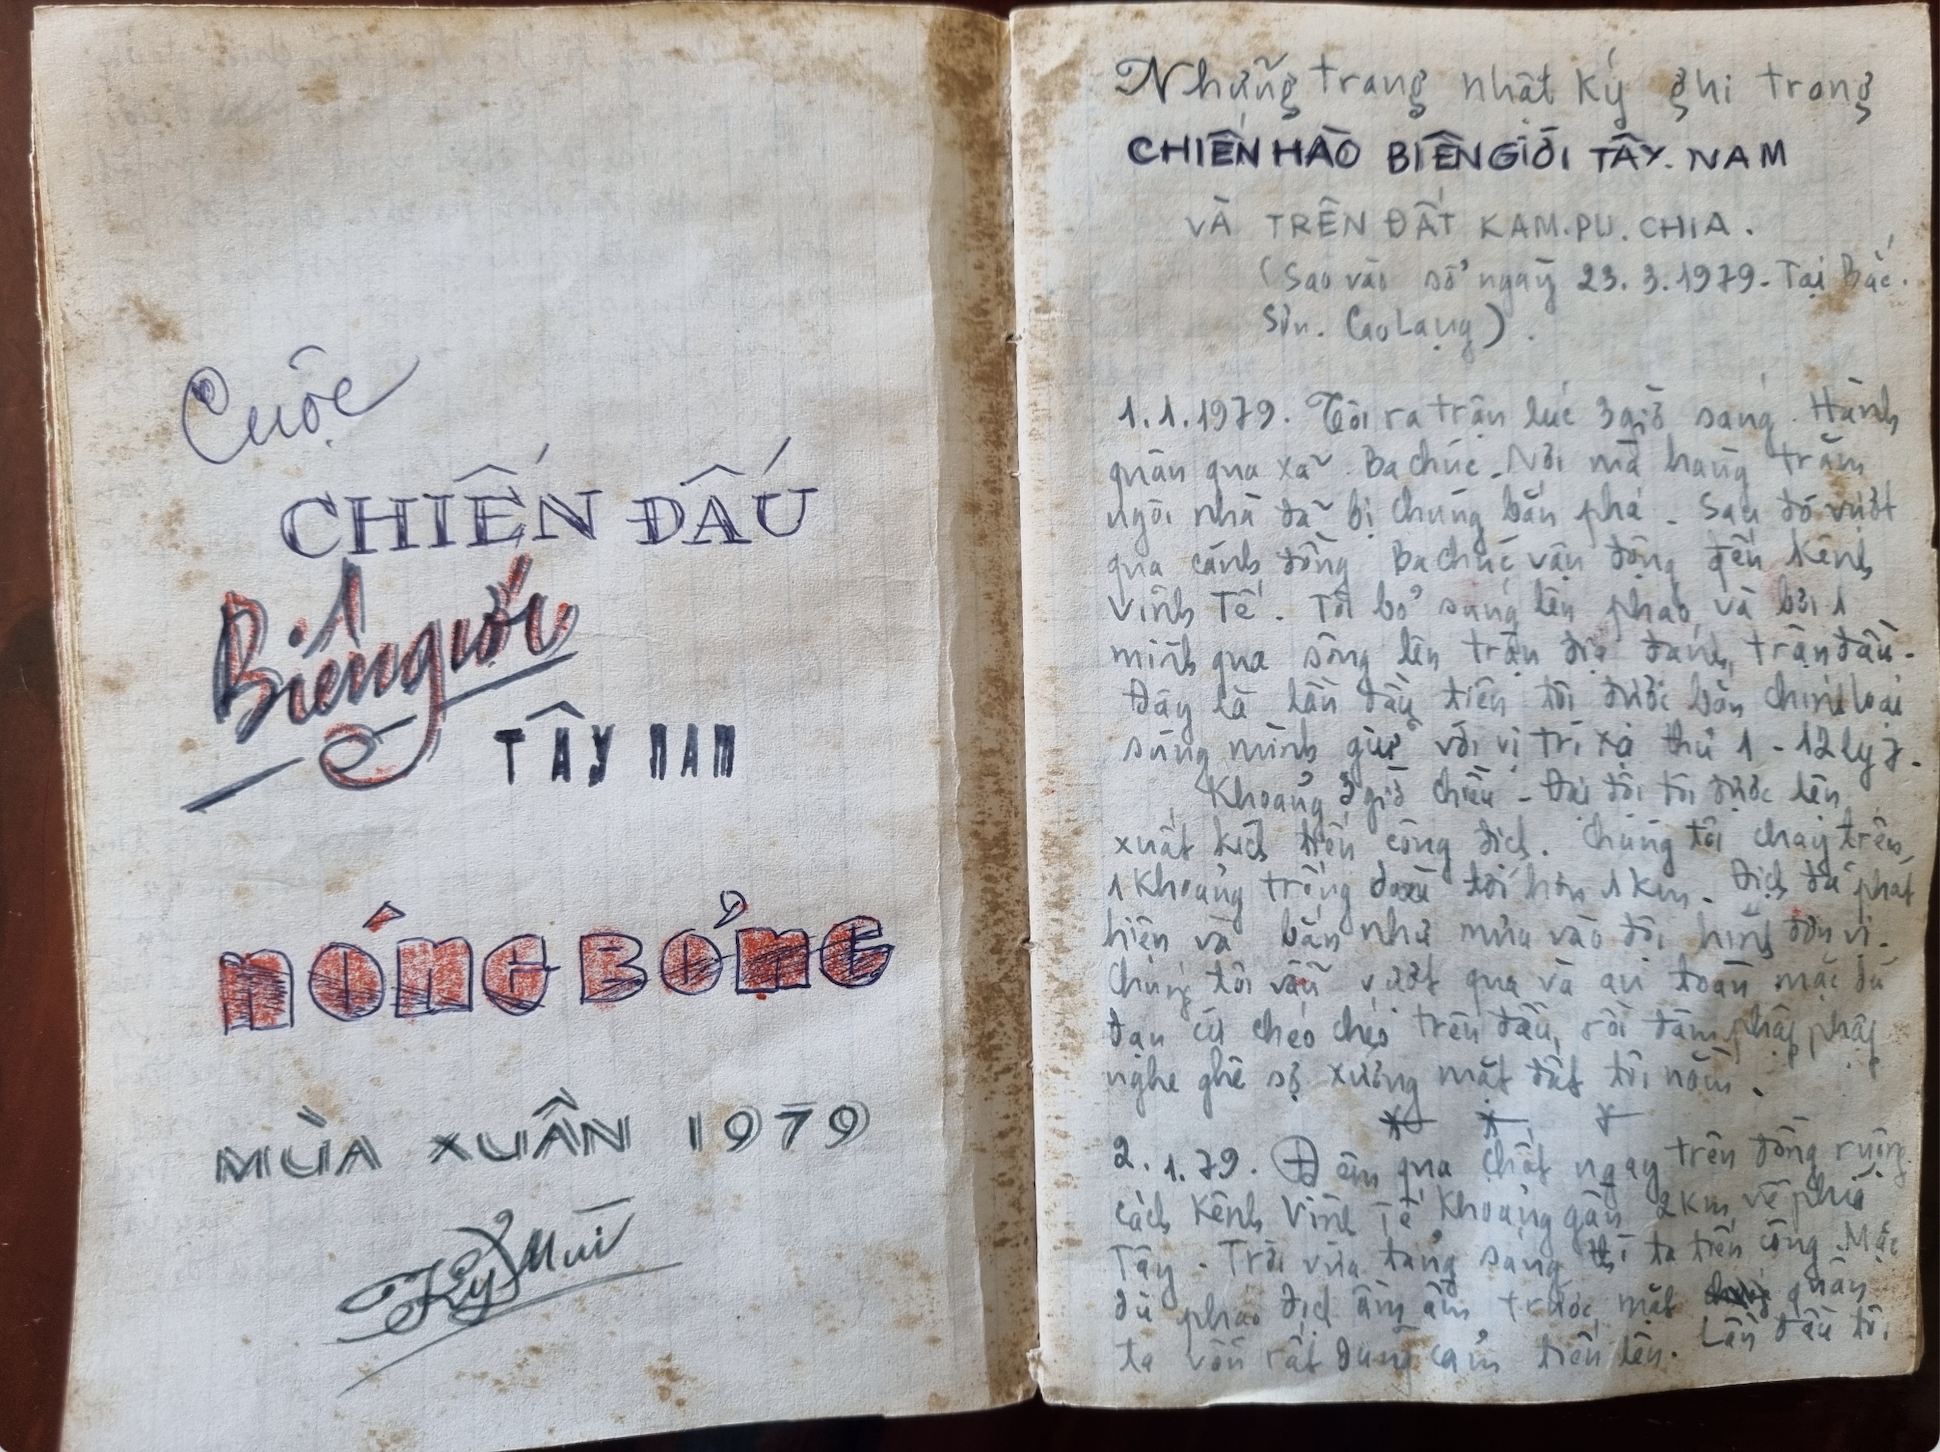 Cuộc
CHIẾN ĐẤU
Biên giới
TÂY NAM
NÓNG BỎNG
MÙA XUÂN 1979
Kỷ Mùi
Những trang nhật ký ghi trong
CHIẾN HÀO BIÊN GIỚI TÂY. NAM
VÀ TRÊN ĐẤT KAM.PU.CHIA.
(Sao vào sổ ngày 23.3.1979 - Tại Bắc.
Sơn. Cao Lạng).
1.1.1979. Tôi ra trận lúc 3 giờ sáng. Hành
quân qua xã Ba chúc. Nơi mà hàng trăm
ngôi nhà đã bị chúng bắn phá. Sau đó vượt
qua cánh đồng Ba chúc vận động đến Kênh
Vĩnh Tế. Tôi bỏ súng lên phao, và bơi 1
mình qua sông lên trận địa đánh trận đầu.
Đây là lần đầu tiên tôi được bắn chính loại
súng mình giữ với vị trí xạ thủ 1 - 12 ly 7.
Khoảng 3 giờ chiều - Đại đội tôi được lên
xuất kích tiến công địch. Chúng tôi chạy trên
1 khoảng trống tới hơn 1 km. Địch đã phát
hiện và bắn như mưa vào đội hình đơn vị.
Chúng tôi vẫn vượt qua và an toàn mặc dù
đạn cứ chéo chéo trên đầu, rồi đâm phập phập
nghe ghê sợ xuống mặt đất tôi nằm.
2.1.79. Đêm qua chốt ngay trên đồng ruộng
cách Kênh Vĩnh Tế khoảng gần 2 km về phía
Tây. Trời vừa tang sáng thì ta tiến công. Mặc
dù pháo địch ầm ầm trước mặt quân
ta vẫn rất dũng cảm tiến lên. Lần đầu tôi